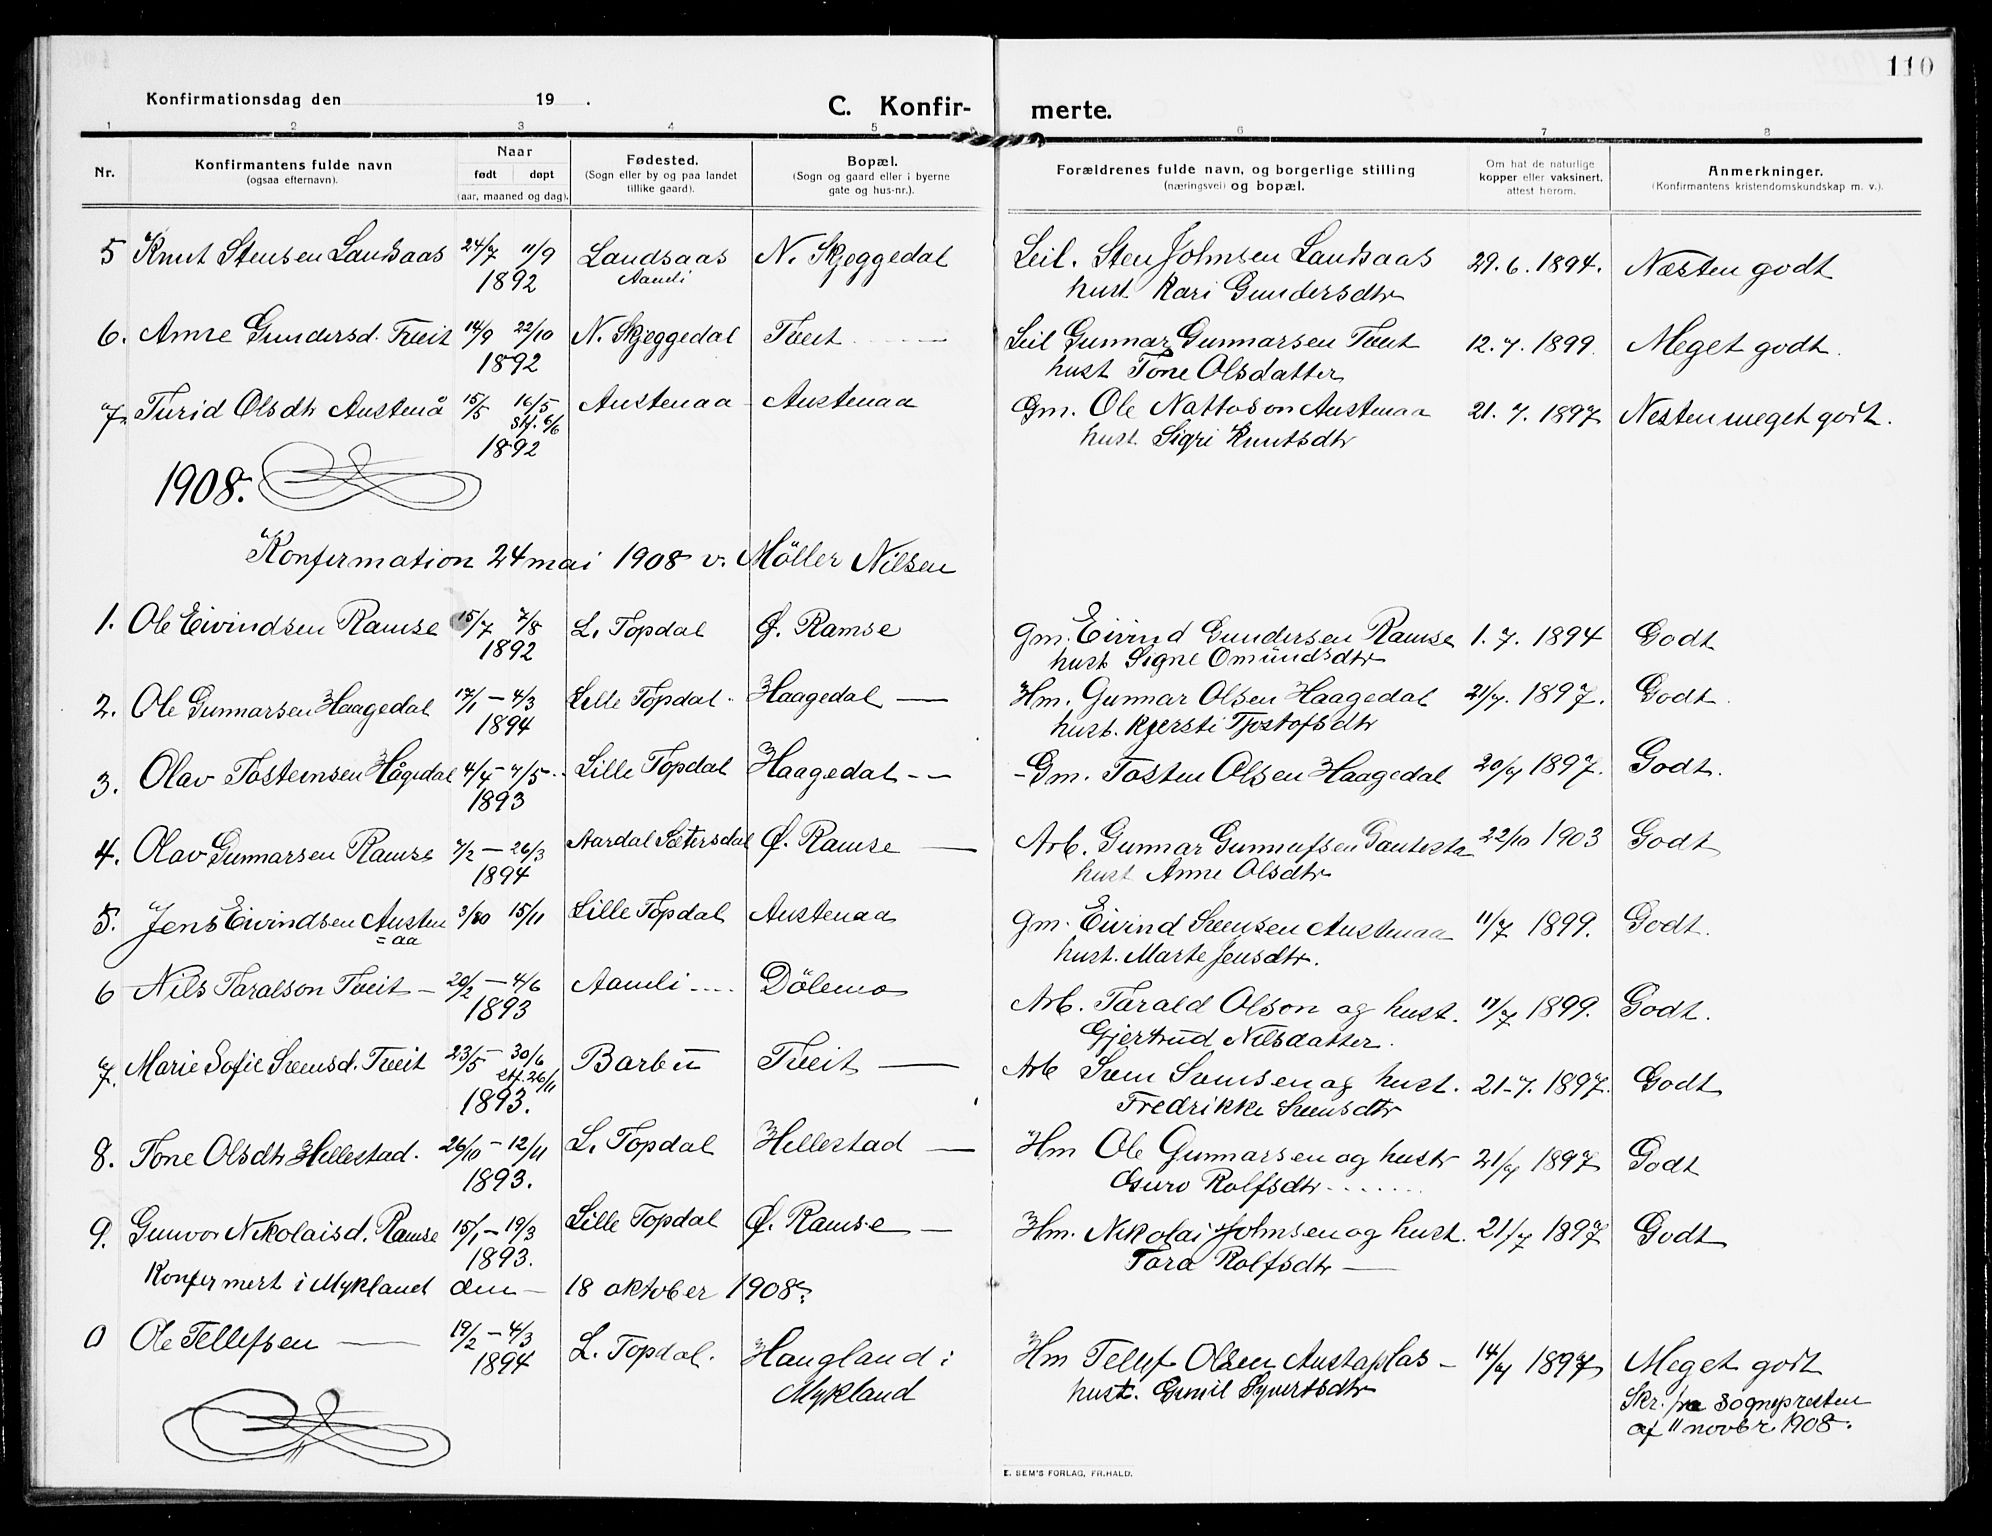 110
Konfirmationsdag den 19 .
C. Konfir- merte.
1 2 3 4 5 6 7 8
Nr.
Konfirmantens fulde navn
(ogsaa efternavn).
Naar
født døpt
(aar, maaned og dag).
Fødested.
(Sogn eller by og paa landet
tillike gaard).
Bopæl.
(Sogn og gaard eller i byerne
gate og hus-nr.).
Forældrenes fulde navn, og borgerlige stilling
(næringsvei) og bopæl.
Om hat de naturlige
kopper eller vaksinert,
attest herom.
Anmerkninger.
(Konfirmantens kristendomskundskap m. v.).
5 Knut Stensen Landsaas 24/7 11/9 Landsaas N. Skjeggedal Leil. Sten Johnsen Landsaas 29.6.1894. Næsten godt
1892 Aamli hust. Kari Gundersdtr
6. Anne Gundersd. Tveit 14/9 22/10 N. Skjeggedal Tveit Leil Gunnar Gunnarsen Tveit 12.7.1899. Meget godt.
1892 hust Tone Olsdatter
7. Turid Olsdtr Austenå 15/5 16/5 Austenaa Austenaa Gm. Ole Nattoson Austenaa 21.7.1897 Nesten meget godt.
Stf. 6/6 hust. Sigri Knutsdtr
1892
1908.
Konfirmation 24 mai 1908 v. Möller Nilsen
1. Ole Eivindsen Ramse 15/7 7/8 L. Topdal Ø. Ramse Gm. Eivind Gundersen Ramse 1.7.1894 Godt
1892 hust Signe Omundsdtr
2. Ole Gunnarsen Haagedal 17/1 – 4/3 Lille Topdal. Haagedal — Hm. Gunnar Olsen Haagedal 21/7. 1897. Godt.
1894 hust. Kjersti Tjostofsdtr
3. Olav Tosteinsen Hågedal 4/4 – 7/5.. Lille Topdal Haagedal -- – Gm. Tosten Olsen Haagedal 20/7 1897. Godt.
1893
4. Olav Gunnarsen Ramse 7/2 – 26/3 Aardal Sætersdal Ø. Ramse — Arb. Gunnar Gunnufsen Tautesta 22/10 1903 Godt
1894 hust Anne Olsdtr
5. Jens Eivindsen Austen 3/10 15/11 Lille Topdal Austenaa Gm. Eivind Svensen Austenaa 11/7 1899. Godt.
=aa hust. Marte Jensdtr.
6 Nils Taralson Tveit – 20/2 – 4/6 Aamli .... Dölemo Arb. Tarald Olson og hust. 11/7 1899. Godt.
1893 Gjertrud Nilsdatter.
7. Marie Sofie Svensd. Tveit 23/5 – 30/6 Barbu Tveit — Arb Sven Svensen og hust. 21-7. 1897. Godt
Stf. 26/11 Fredrikke Svensdtr
1893.
8. Tone Olsdtr Hillestad. 26/10 – 12/11 L. Topdal Hillestad — Hm Ole Gunnarsen og hustr 21/7 1897 Godt
1893. Guro Rolfsdtr
9. Gunvor Nikolaisd. Ramse 15/1 – 19/3 Lille Topdal Ø. Ramse — Hm. Nikolai Johnsen og hust. 21/7 1897 Godt
1893. Tara Rolfsdtr —
Konfirmert i Mykland den – 18 oktober 1908.
0 Ole Tellefsen — 19/2 – 4/3 L. Topdal. Haugland i Hm Tellef Olsen Austaplas – 14/7 1897 Meget godt
1894 Mykland hust. Gunil Syvertsdtr
Skr. fra Sognepresten
af 11 novbr 1908.
E. SEM'S FORLAG, FR.HALD.